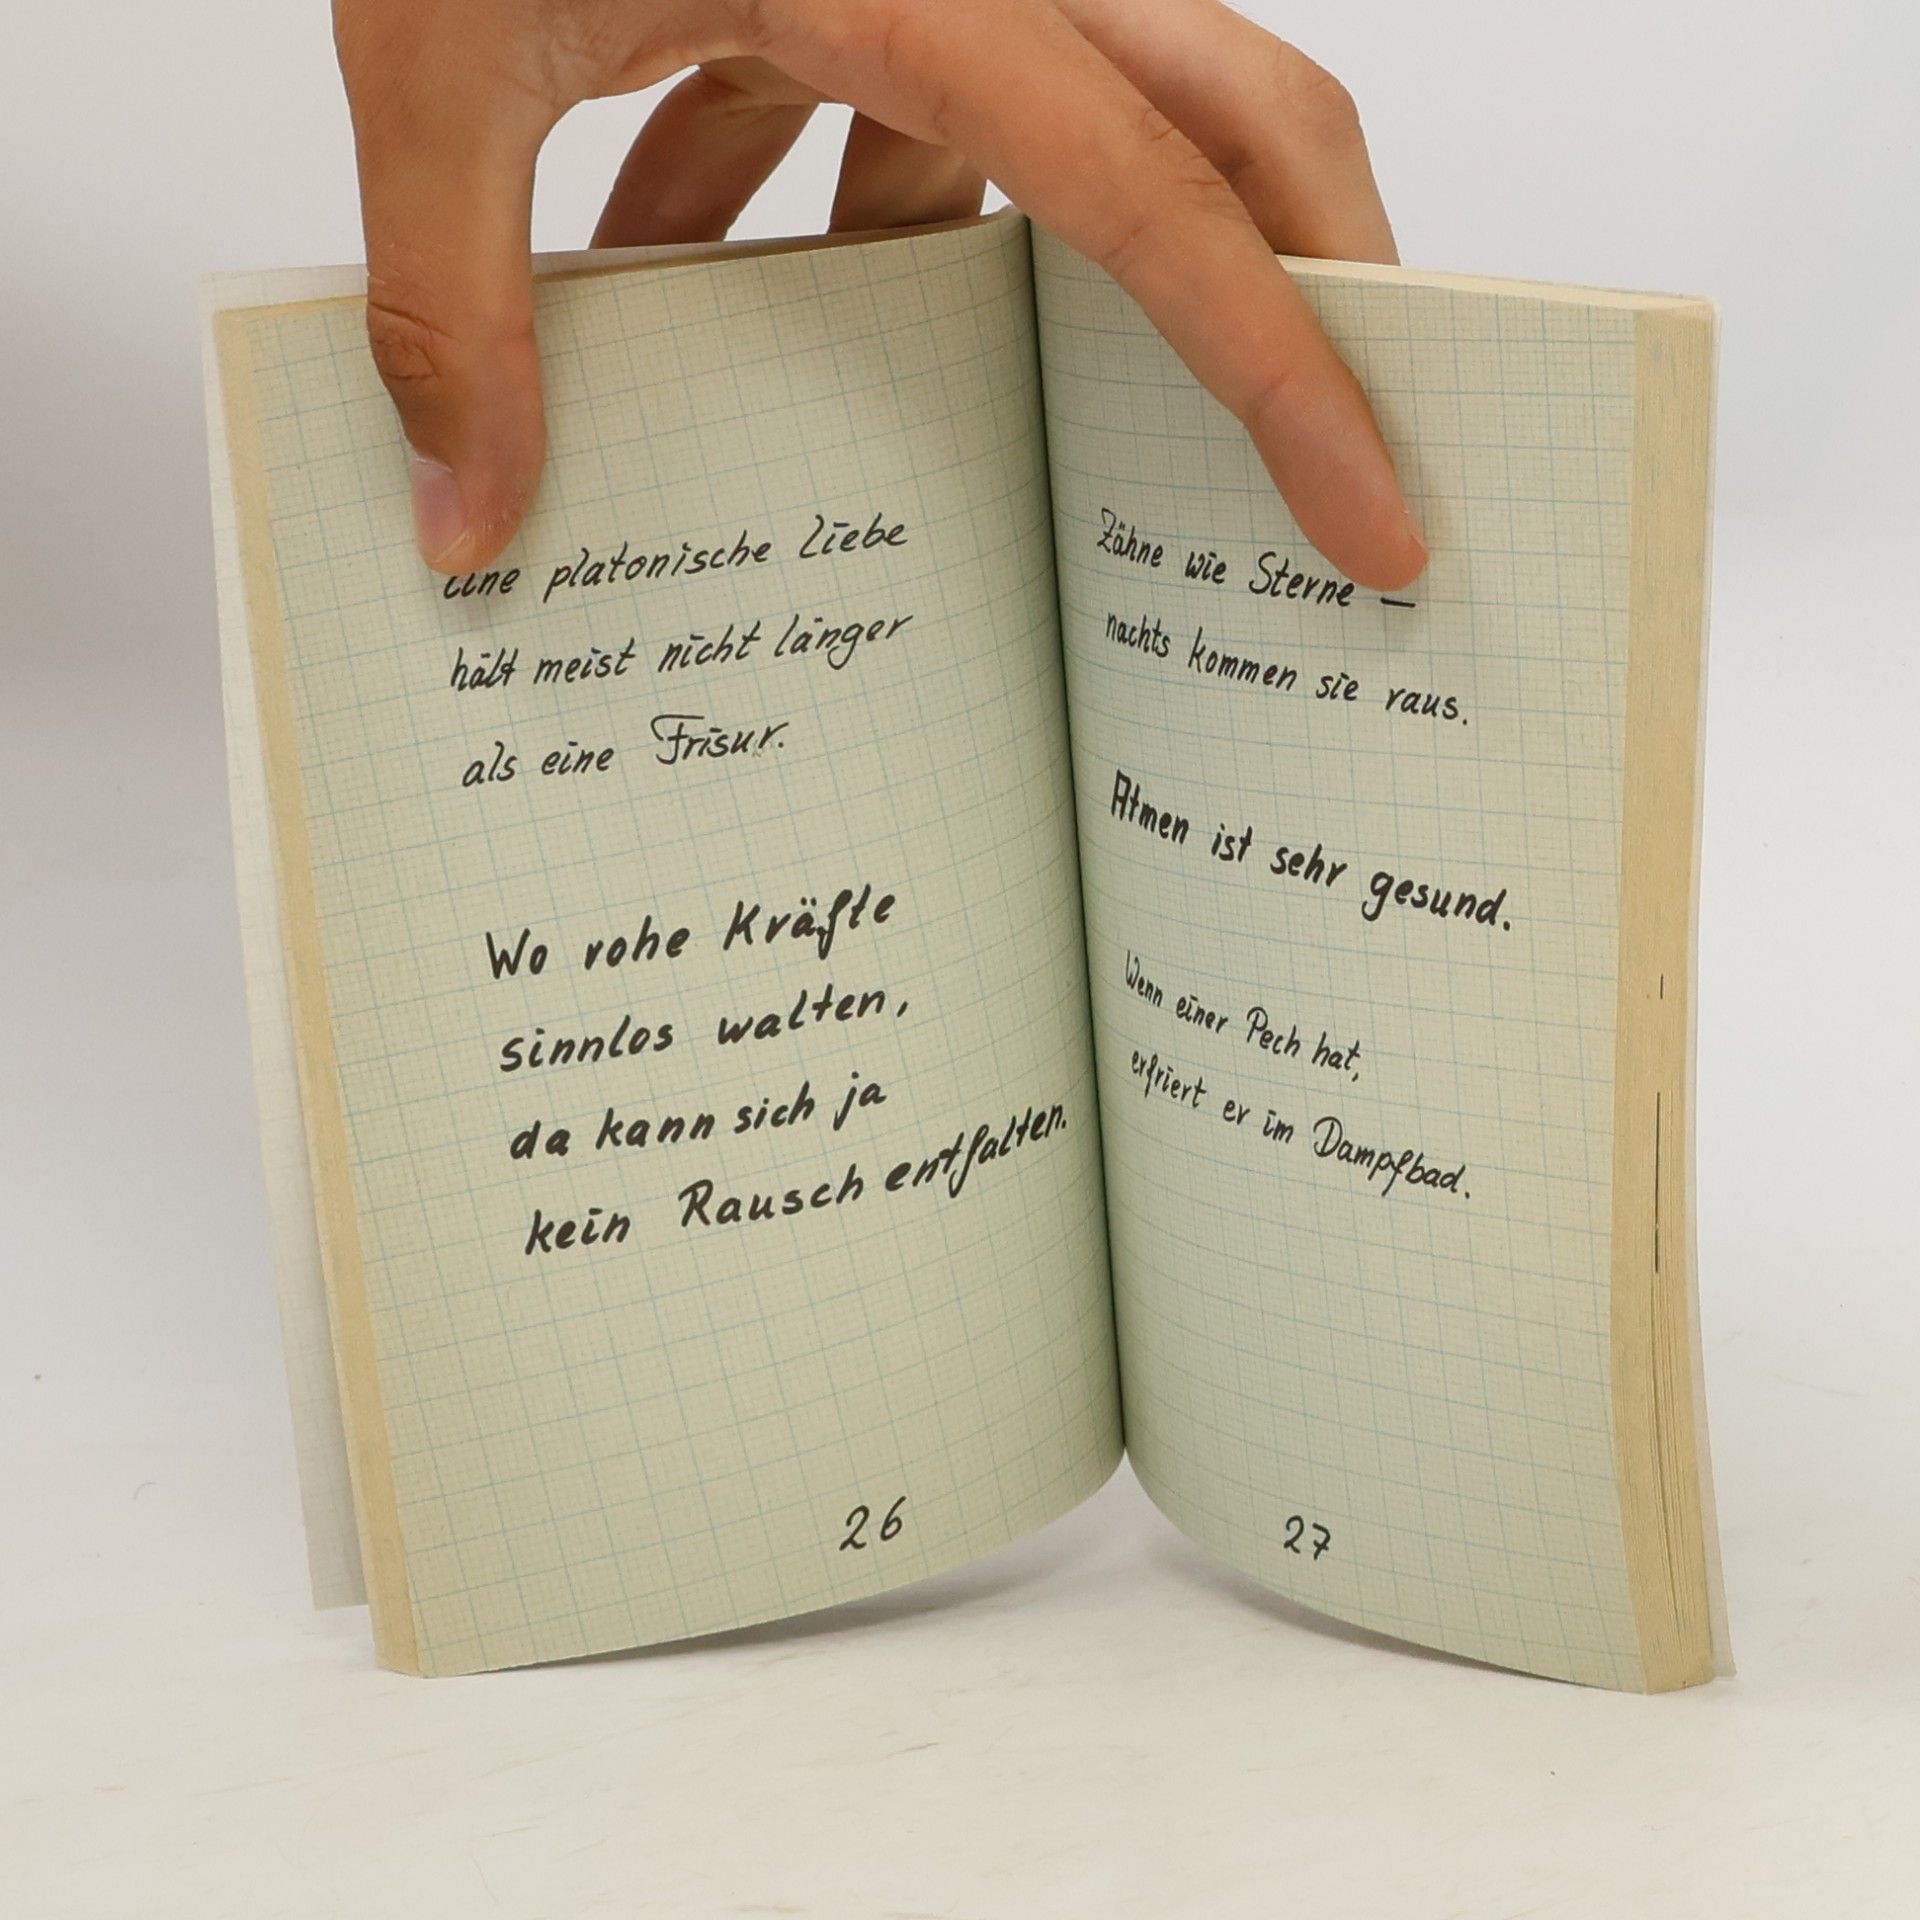 Eine platonische Liebe
hält meist nicht länger
als eine Frisur.
Wo rohe Kräfte
sinnlos walten,
da kann sich ja
kein Rausch entfalten.
26
Zähne wie Sterne —
nachts kommen sie raus.
Atmen ist sehr gesund.
Wenn einer Pech hat,
erfriert er im Dampfbad.
27